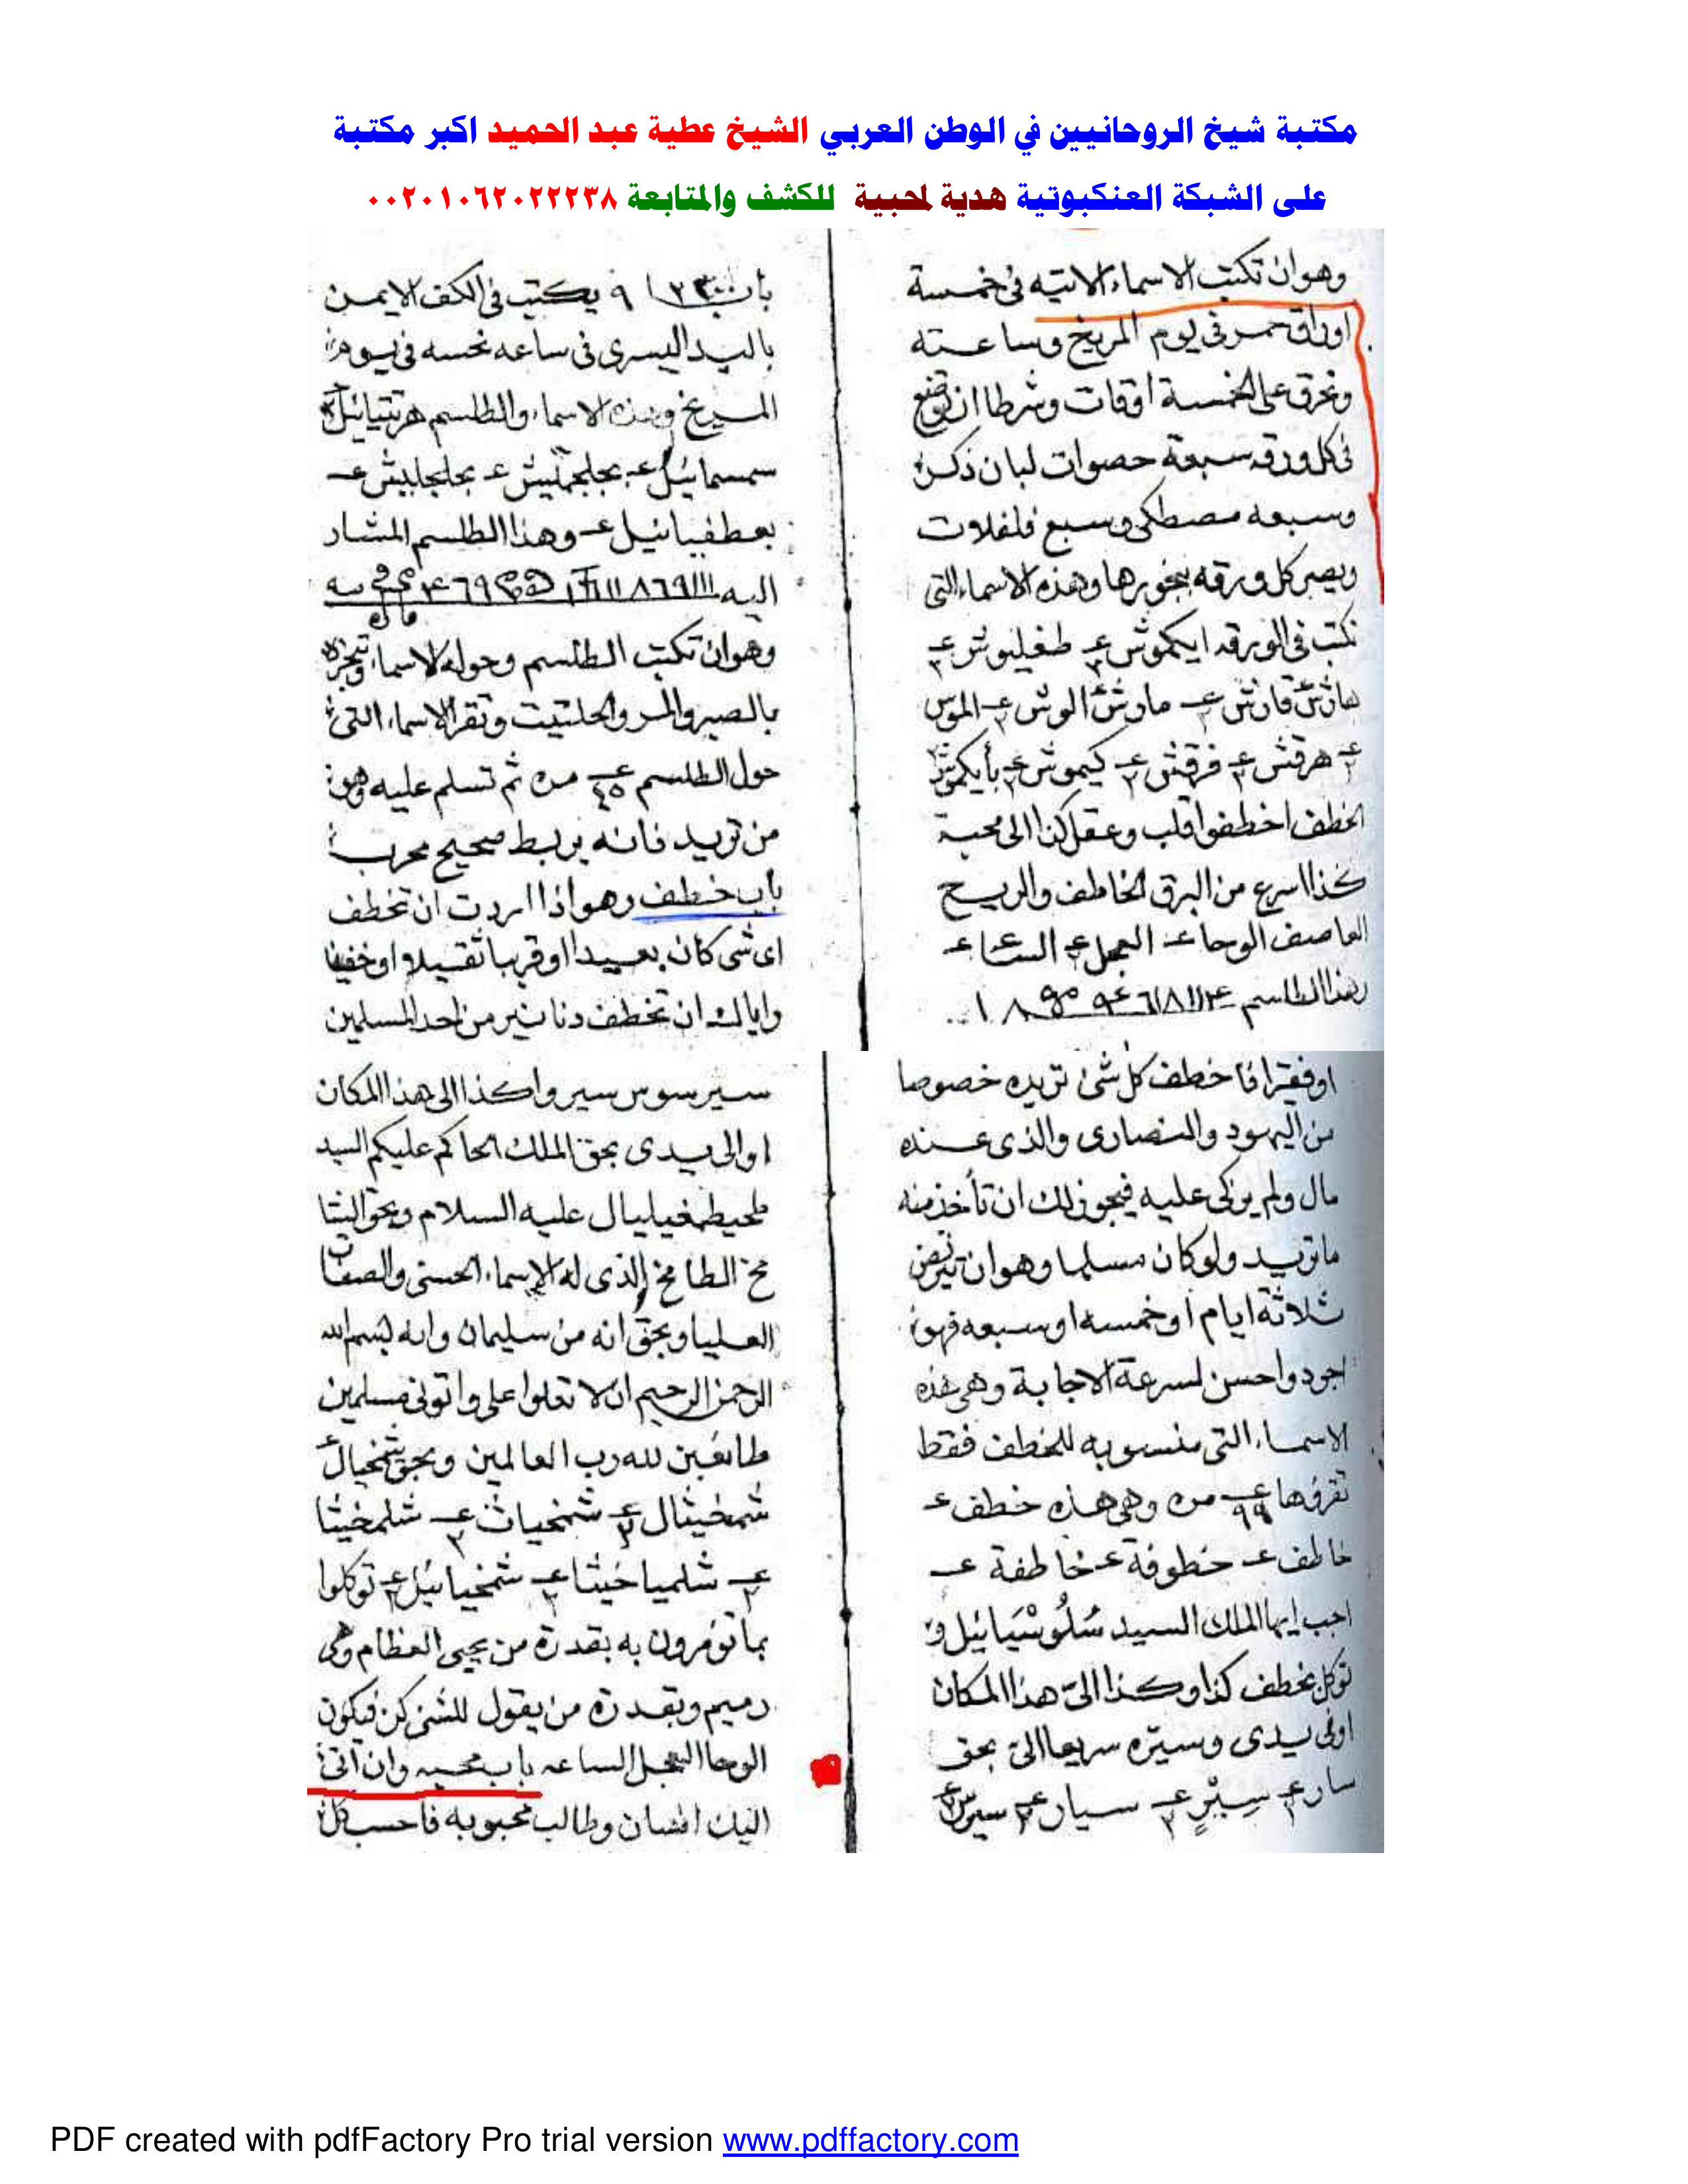 مكتبة شيخ الروحانيين في الوطن العربي الشيخ عطية عبد الحميد اكبر مكتبة
على الشبكة العنكبوتية هدية لمحبية للكشف والمتابعة ٠٠٢٠١٠٦٢٠٢٢٢٣٨
وهو ان تكتب الاسماء الاتيه فى خمسة
اوراق حمر فى يوم المريخ وساعته
وتحرق على الخمسة اوقات وشرطا ان توضع
فى كل ورقه سبعة حصوات لبان ذكر
وسبعه مصطكى وسبع فلفلات
ويصير كل ورقه ببخورها وهذه الاسماء التى
تكتب فى الورقه ايكموش طغليوش
قارش مارش الوش
هرقش فرقش كيموش
الخطف اخطفوا قلب وعقل كذا الى محبة
كذا اسرع من البرق الخاطف والريح
العاصف الوحا العجل الساعه
بهذا الطلسم
يكتب فى الكف الايمن
باليد اليسرى فى ساعه نحسه فى يوم
المريخ وهذه الاسماء والطلسم
سمسمائيل
وهذا الطلسم المشار
اليه
وهو ان تكتب الطلسم وحوله الاسماء وتبخره
بالصبر والمر والحلتيت وتقرا الاسماء التى
حول الطلسم ٤٥ مره ثم تسلم عليه وهو
من تريد فانه يربط صحيح مجرب
باب خطف وهو اذا اردت ان تخطف
اى شى كان بعيدا او قريبا ثقيلا او خفيفا
واياك ان تخطف دنانير من احد المسلمين
او فقيرا فاخطف كل شئ تريده خصوصا
من اليهود والنصارى والذى عنده
مال ولم يزكى عليه فيجوز لك ان تأخذ منه
ما تريد ولو كان مسلما وهو ان تريض
ثلاثة ايام او خمسه او سبعه فهو
اجود واحسن لسرعة الاجابة وهى هذه
الاسماء التى منسوبه للخطف فقط
تقرؤها ٩٩ مره وهى هذه خطف
خاطف خطوفة خاطفة
اجب ايها الملك السيد شلوشيائيل و
توكل بخطف كذا وكذا الى هذا المكان
اوفى يدى وسيره سريعا الى بحق
سار سير سيار
سير سوس سيروا كذا الى هذا المكان
او الى يدى بحق الملك الحاكم عليكم السيد
طحيطمغيليال عليه السلام وبحق الشا
مخ الطامخ الذى له الاسماء الحسنى والصفات
العليا وبحق انه من سليمان وانه بسم الله
الرحمن الرحيم ان لا تعلوا على واتونى مسلمين
طائعين لله رب العالمين وبحق
شمخيثال شمخياث شلمخيثا
شلمياخيثا شمخيائيل توكلوا
بما تؤمرون به بقدرة من يحيى العظام وهى
رميم وبقدرة من يقول للشئ كن فيكون
الوحا العجل الساعه باب محبه وان اتى
اليك انسان وطالب محبوبه فاحسب كل
PDF created with pdfFactory Pro trial version www.pdffactory.com